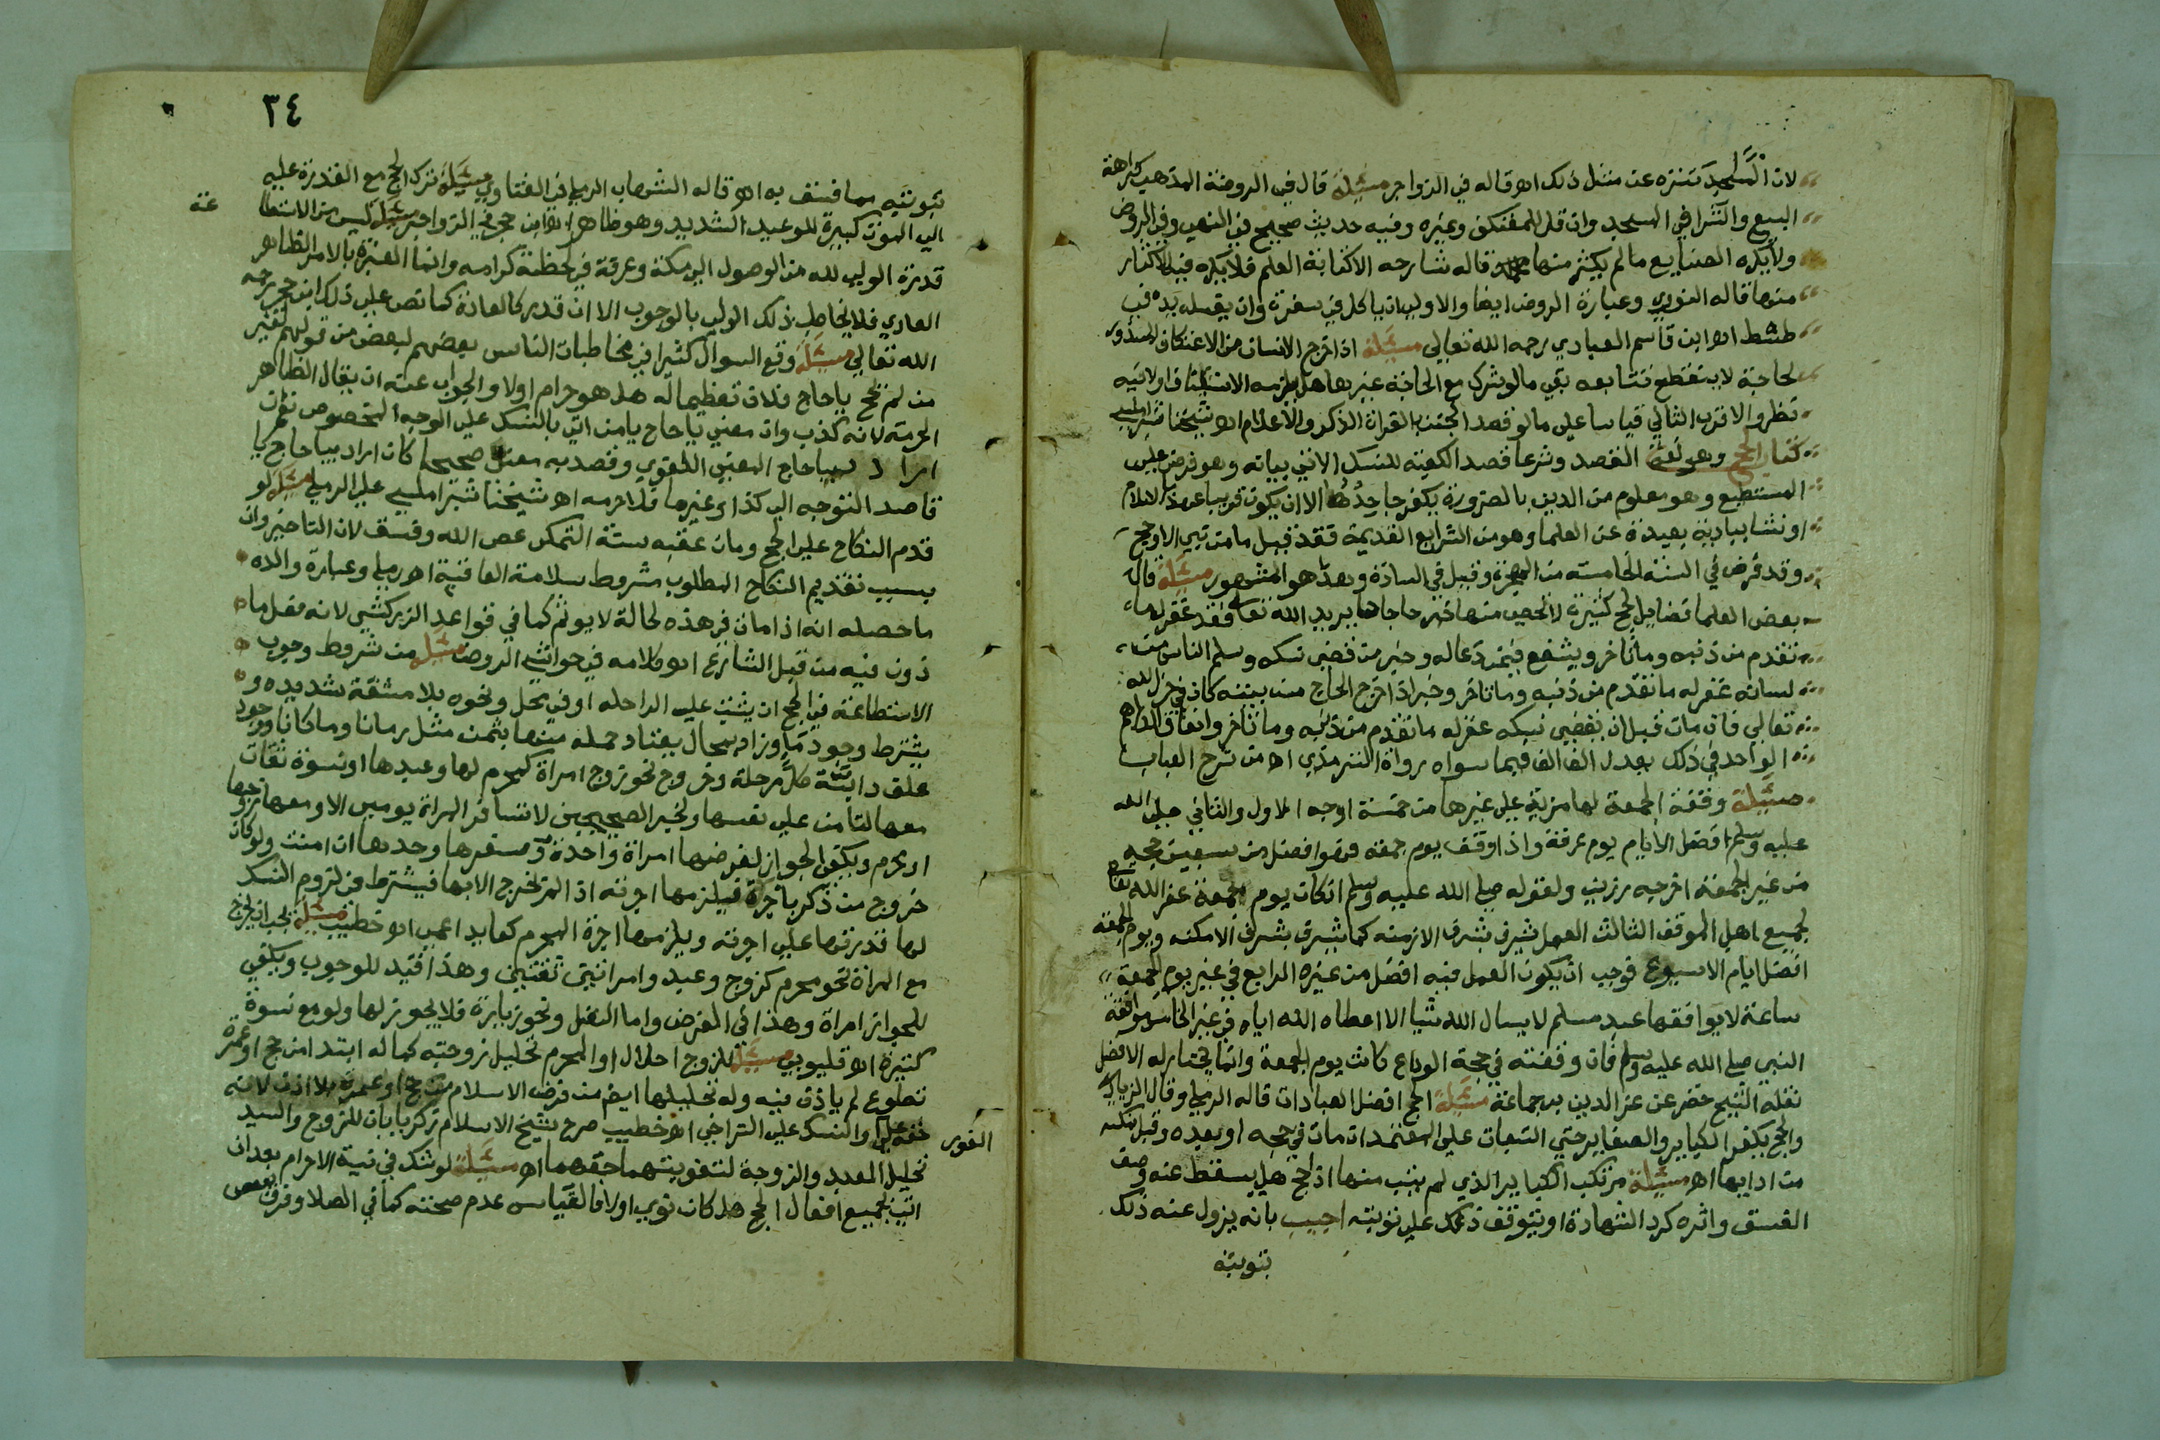 لان المسجد تنزه عن مثل ذلك اه قاله في الزواجر مسئلة قال في الروضة المذهب كراهة
البيع والشرا في المسجد وان قل للمعتكف وغيره وفيه حديث صحيح في النهي وفي الروض
ولا يكره الصنايع ما لم يكثر منها قاله شارحه الا كتابة العلم فلا يكره فيه الاكثار
منها قاله النووي وعبارة الروض ايضا والاولى ان ياكل في سفرة وان يغسل يده في
طشط اه ابن قاسم العبادي رحمه الله تعالى مسئلة اذا خرج الانسان من الاعتكاف المنذور
لحاجة لا ينقطع تتابعه بقي ما لو شرك مع الحاجة غيرها هل يلزمه الاستئناف اولا فيه
نظر والاقرب الثاني قياسا على ما لو قصد الجنب بالقراة الذكر والاعلام اه شيخنا شبراملسي
كتاب الحج وهو لغة القصد وشرعا قصد الكعبة للنسك الاتي بيانه وهو فرض على
المستطيع وهو معلوم من الدين بالضرورة يكفر جاحده الا ان يكون قريب عهد بالاسلام
او نشا ببادية بعيدة عن العلما وهو من الشرايع القديمة فقد قيل ما من نبي الا وحج
وقد فرض في السنة الخامسة من الهجرة وقيل في السادسة وهذا هو المشهور مسئلة قال
بعض العلما فضايل الحج كثيرة لا تحصى منها خبر من حاجا يريد الله تعا فقد غفر له ما
تقدم من ذنبه وما تاخر ويشفع فيمن دعا له وخبر من قضى نسكه وسلم الناس من
لسانه غفر له ما تقدم من ذنبه وما تاخر وخبر اذا خرج الحاج من بيته كان في حرز الله
تعالى فان مات قبل ان يقضي نسكه غفر له ما تقدم من ذنبه وما تاخر وانفاق الدرهم
الواحد في ذلك يعدل الف الف فيما سواه رواه الترمذي اه من شرح العباب
مسئلة وقفة الجمعة لها مزية على غيرها من خمسة اوجه الاول والثاني صلى الله
عليه وسلم افضل الايام يوم عرفة واذا وقف يوم جمعة فهو افضل من سبعين حجة
من غير الجمعة اخرجه رزين ولقوله صلى الله عليه وسلم اذا كان يوم جمعة غفر الله تعالى
لجميع اهل الموقف الثالث العمل شرف بشرف الازمنة كما شرف بشرف الامكنة ويوم الجمعة
افضل ايام الاسبوع فوجب ان يكون العمل فيه افضل من غيره الرابع في غير يوم الجمعة
ساعة لا يوافقها عبد مسلم لا يسال الله شيا الا اعطاه الله اياه في غير الخامس موافقة
النبي صلى الله عليه وسلم فان وقفته في حجة الوداع كانت يوم الجمعة وانما يختار له الافضل
نقله الشيخ خضر عن عز الدين بن جماعة مسئلة الحج افضل العبادات قاله الرملي وقال الزيادي
والحج يكفر الكباير والصغاير حتى التبعات على المعتمد ان مات في حجه او بعده وقبل تمكنه
من ادايها اه مسئلة مرتكب الكباير الذي لم يتب منها اذا حج هل يسقط عنه وصف
الفسق واثره كرد الشهادة او يتوقف ذلك على توبته اجيب بانه يزول عنه ذلك
بتوبته
٣٤
بتوبته مما فسق به اه قاله الشهاب الرملي في الفتاوي مسئلة ترك الحج مع القدرة عليه
الى الموت كبيرة للوعيد الشديد وهو ظاهر اه ابن حجر في الزواجر مسئلة ليس من الاستطا
عة
قدرة الولي لله من الوصول الى مكة وعرفة في لحظة كرامة وانما العبرة بالامر الظاهر
العادي فلا يخاطب ذلك الولي بالوجوب الا ان قدر كالعادة كما نص على ذلك ابن حجر رحمه
الله تعالى مسئلة وقع السوال كثيرا في مخاطبات الناس بعضهم لبعض من قولهم لغير
من لم يحج يا حاج فلان تعظيما له هل هو حرام اولا والجواب عنه ان يقال الظاهر
الحرمة لانه كذب وان معنى يا حاج يا من اتى بالنسك على الوجه المخصوص نعم ان
اراد بيا حاج المعنى اللغوي وقصد به معنى صحيحا كان اراد بيا حاج يا
قاصد التوجه الى كذا او غيرها فلا حرمه اه شيخنا شبراملسي على الرملي مسئلة لو
قدم النكاح على الحج ومات عقبه سنة التمكن عصى الله وفسق لان التاخير وان
بسبب تقديم النكاح المطلوب مشروط بسلامة العاقبة اه رملي وعبارة والده
ما حصله انه اذا مات في هذه لحالة لا يوثم كما في قواعد الزركشي لانه فعل ما
ذون فيه من قبل الشارع اه كلامه في حواشي الروض مسئلة من شروط وجوب
الاستطاعة في الحج ان يثبت على الراحله او في محمل ونحوه بلا مشقة شديده و
يشترط وجود ما وزاد بمحال يعتاد حمله منها بثمن مثل زمانا ومكانا ووجود
علف دابته كل مرحلة وخروج نحو زوج امراة كمحرم لها وعبدها او نسوة ثقات
معها لتامن على نفسها ولخبر الصحيحين لا تسافر المراة يومين الا ومعها زوجها
او محرم ويكفي الجواز لفرضها امراة واحدة وسفرها وحدها ان امنت ولو كان
خروج من ذكر باجرة فيلزمها اجرته اذا لم تخرج الا بها فيشترط في لزوم النسك
لها قدرتها على اجرته ويلزمها اجرة المحرم كقايد اعمى اه خطيب مسئلة يجب ان يخرج
مع المراة نحو محرم كزوج وعبد وامراتين ثقتين وهذا قيد للوجوب ويكفي
للجواز امراة وهذا في الفرض واما النفل ونحو زيارة فلا يجوز لها ولو مع نسوة
كثيرة اه قليوبي مسئلة للزوج احلال او المحرم تحليل زوجته كما له ابتدا من حج او عمرة
تطوع لم ياذن فيه وله تحليلها ايضا من فرض الاسلام من حج او عمرة بلا اذن لانه
حقه على الفور والنسك على التراخي اه خطيب صرح شيخ الاسلام زكريا بان للزوج والسيد
تحليل العبد والزوجة لتفويتهما حقهما اه مسئلة لو شك في نية الاحرام بعد ان
اتى بجميع افعال الحج هل كان نوي اولا فالقياس عدم صحته كما في الصلاة وفرق بعض